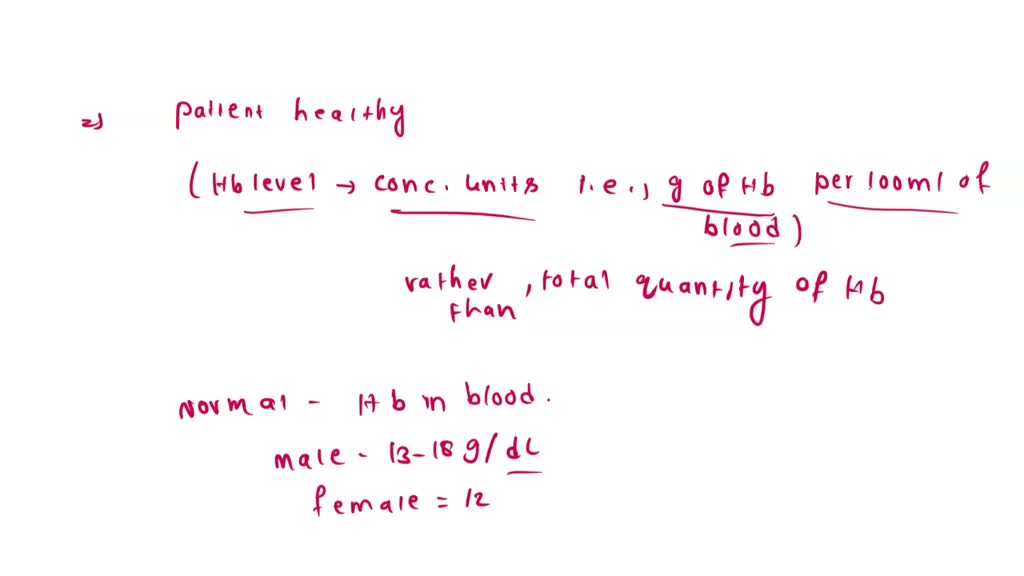 2) patient healthy
(Hb level → conc. units i.e., g of Hb per 100ml of
blood)
rather , total quantity of Hb
than
Normal - Hb in blood.
male - 13-18 g/dL
female = 12